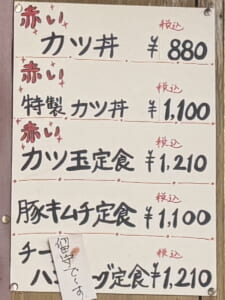 赤い 税込
カツ丼 ¥880
赤い 税込
特製 カツ丼 ¥1,100
赤い 税込
カツ玉定食 ¥1,210
税込
豚キムチ定食 ¥1,100
チー 税込
ハン ーグ定食 ¥1,210
留守で~す。